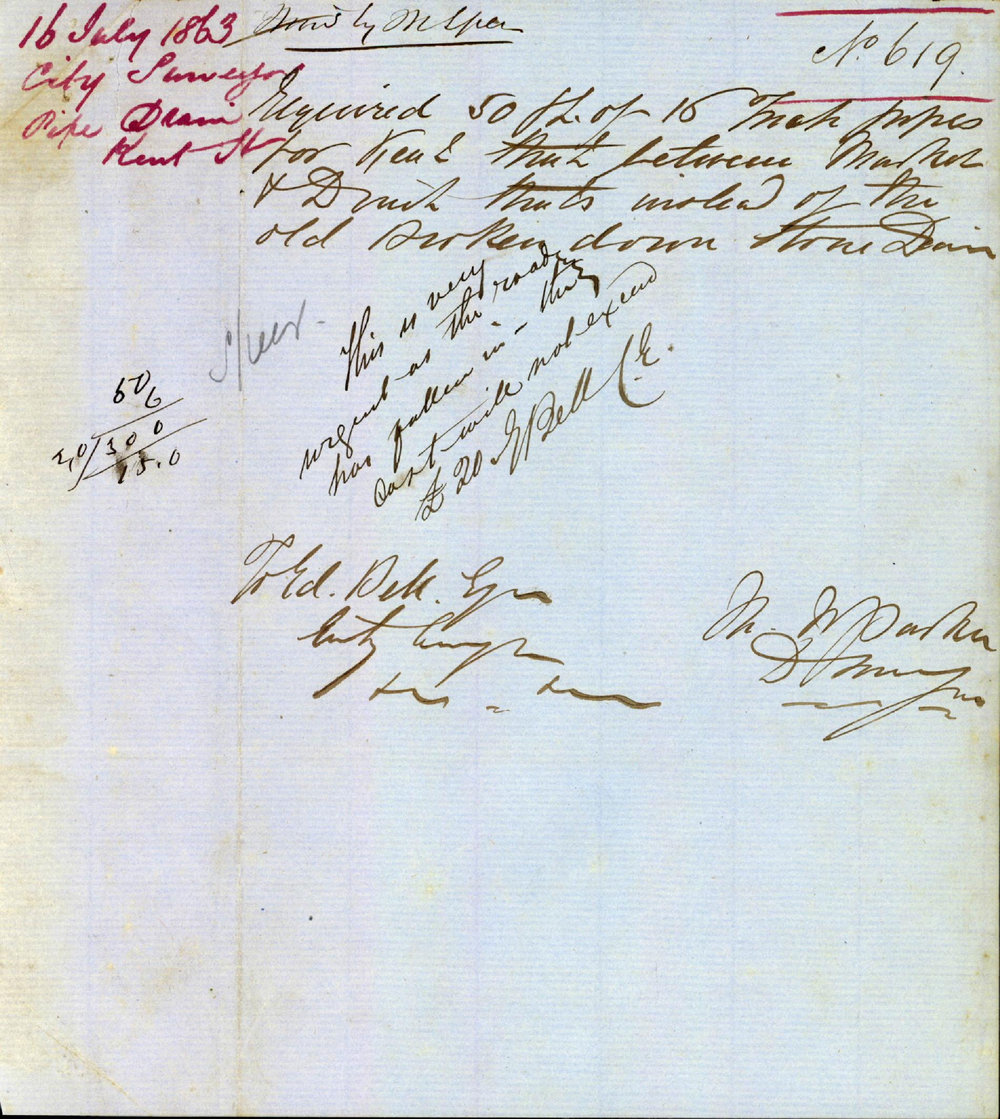 16 July 1863
City Surveyor
Pipe Drain
Kent St
by Mr Speer
No. 619.
Required 50 ft. of 15 Inch pipes
for Kent Street between Market
& Druitt Streets instead of the
old Broken down Stone Drain
This is very
urgent as the roadway
has fallen in - the
cost will not exceed
£20 EBell C.E.
Speer.
50
6
2,0) 300
15.0
To Ed. Bell. Esqr
City Engr
M. W Parker